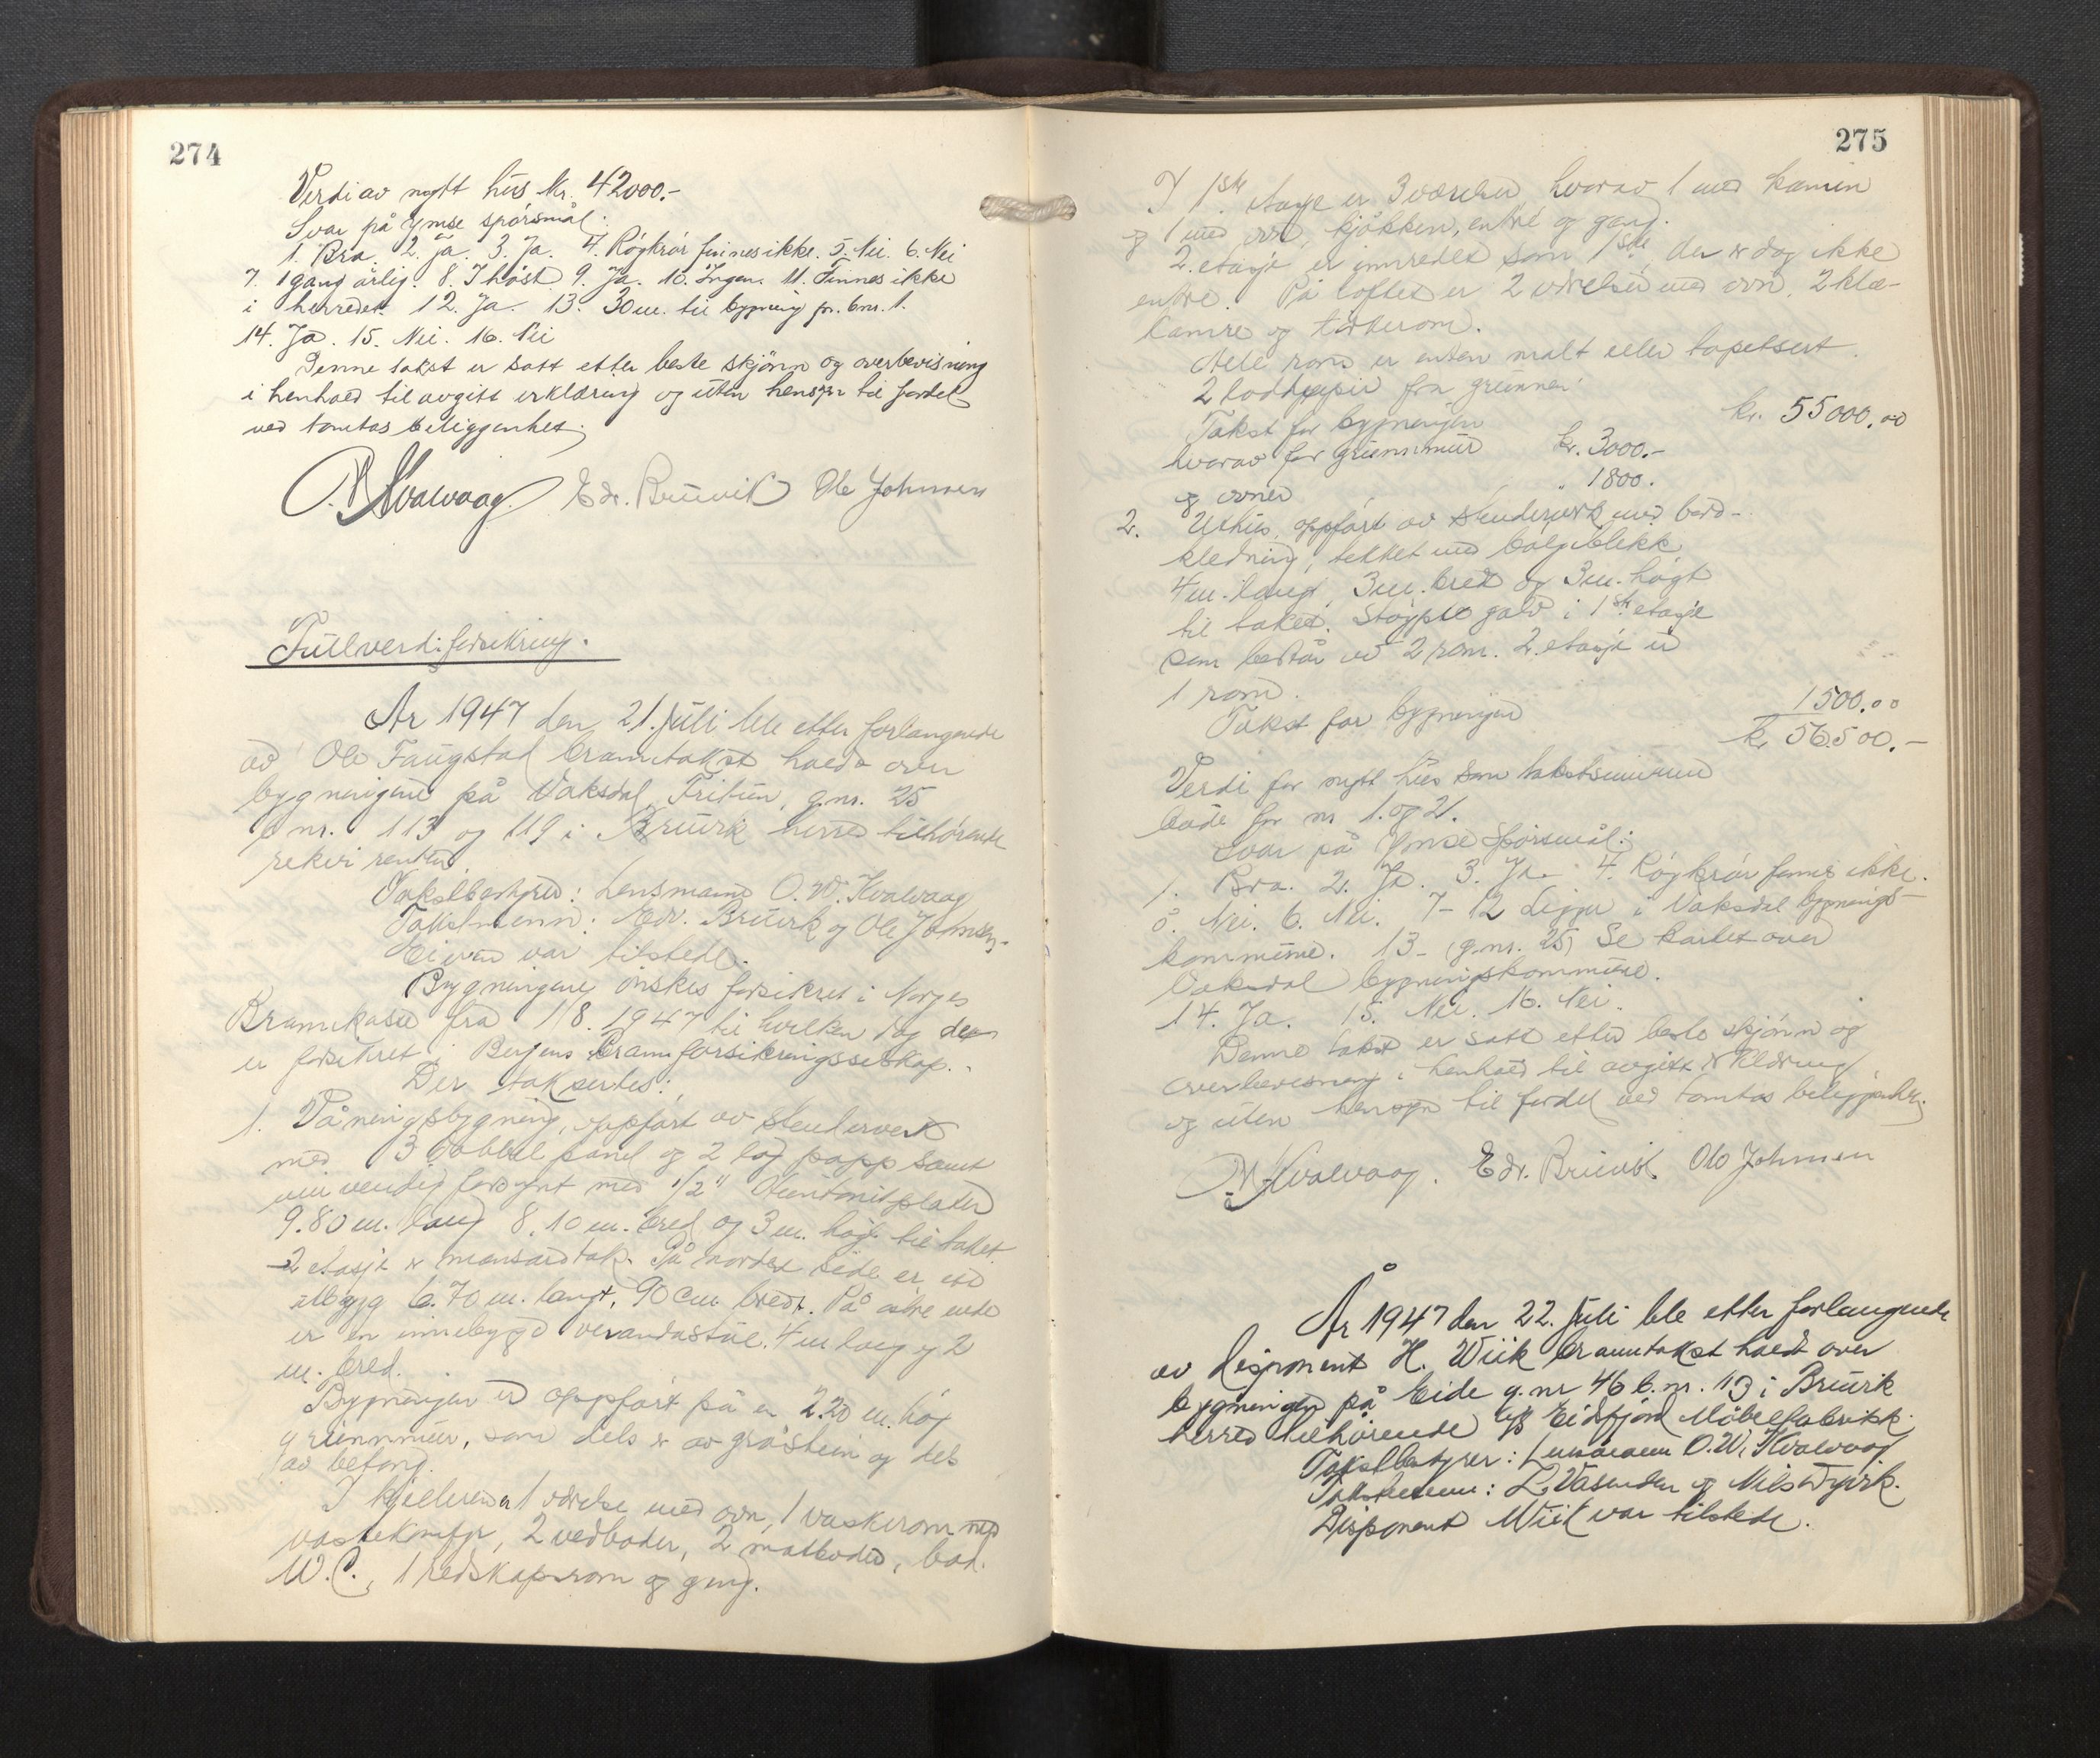 274
Verdi av nytt hus kr. 42000.-
Svar på ymse spørsmål:
1. Bra. 2. Ja. 3. Ja. 4. Røykrør finnes ikke. 5. Nei. 6. Nei
7. 1 gang årlig. 8. I høst 9. Ja. 10. Ingen. 11. Finnes ikke
i herredet. 12. Ja. 13. 30 m. til bygning på bnr. 1.
14. Ja. 15. Nei. 16. Nei
Denne takst er satt etter beste skjønn og overbevisning
i henhold til avgitt erklæring og uten hensyn til fordel
ved tomtas beliggenhet.
O.W. Kvalvaag. Edv. Bruvik Ole Johnsen
Fullverdiforsikring.
År 1947 den 21. juli ble etter forlangende
av Ole Faugstad branntakst holdt over
bygningene på Vaksdal, Fritun, g.nr. 25
b.nr. 113 og 119 i Bruvik herred tilhørende
rekvirenten.
Takstbestyrer: Lensmann O.W. Kvalvaag
Takstmenn: Edv. Bruvik og Ole Johnsen.
Eieren var tilstede.
Bygningene ønskes forsikret i Norges
Brannkasse fra 1/8. 1947 til hvilken dag den
er forsikret i Bergens Brannforsikringsselskap.
Der taksertes:
1. Våningsbygning, oppført av stenderverk
med 3 dobbel panel og 2 lag papp samt
innvendig forsynt med 1/2" Huntonitplater
9.80 m. lang 8.10 m. bred og 3 m. høg til taket
2 etasje m mansardtak. På nordre side er ett
utbygg 6.70 m. langt, 90 cm. bredt. På østre ende
er en innebygd verandastue. 4 m lang og 2
m. bred.
Bygningen er oppført på en 2.20 m. høg
grunnmur, som dels er av gråstein og dels
av betong.
I kjelleren er 1 værelse med ovn, 1 vaskerom med
vaskekomfyr, 2 vedboder, 2 matboder, bad.
W.C., 1 redskapsrom og gang.
275
I 1ste etasje er 3 værelser, hvorav 1 med kamin
og 1 med ovn, kjøkken, entre og gang.
2. etasje er innredet som 1ste der er dog ikke
entre. På loftet er 2 værelser med ovn, 2 kle-
kamre og tørkerom.
Alle rom er enten malt eller tapetsert.
2 fra grunnen.
Takst for bygningen kr. 55000.00
hvorav for grunnmur kr. 3000.-
og ovner " 1800.
2. Uthus, oppført av stenderverk med bord-
kledning, tekket med bølgeblikk,
4 m. langt, 3 m. bredt og 3 m. høgt
til taket. Støypt golv i 1ste etasje
som består av 2 rom. 2. etasje er
1 rom.
Takst for bygningen 1500.00
kr. 56500.-
Verdi for nytt hus som takstsummene
både for nr 1. og 2.
Svar på ymse spørsmål:
1. Bra. 2. Ja. 3. Ja. 4. Røykrør finnes ikke.
5. Nei. 6. Nei. 7-12 Ligger i Vaksdal bygnings-
kommune. 13 - (g.nr. 25) Se kartet over
Vaksdal bygningskommune.
14. Ja. 15. Nei. 16. Nei.
Denne takst er satt etter beste skjønn og
overbevisning i henhold til avgitt erklæring
og uten hensyn til fordel ved tomtas beliggenhet.
O.W. Kvalvaag. Edv. Bruvik Ole Johnsen
År 1947 den 22. juli ble etter forlangende
av disponent H. Wiik branntakst holdt over
bygningen på Eide g.nr 46 b.nr. 13 i Bruvik
herred tilhørende A/S Eidsfjord Møbelfabrikk.
Takstbestyrer: Lensmann O.W. Kvalvaag
Takstmenn: L. Vasenden og Nils Dyvik.
Disponent Wiik var tilstede.